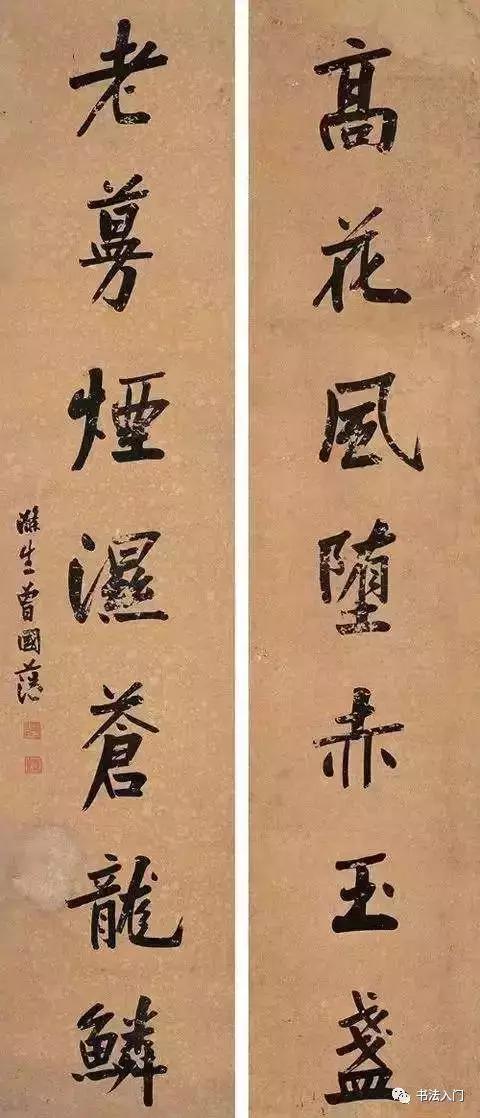 高花風堕赤玉盞
老蔓煙濕蒼龍鱗
滌生曾國藩
书法入门